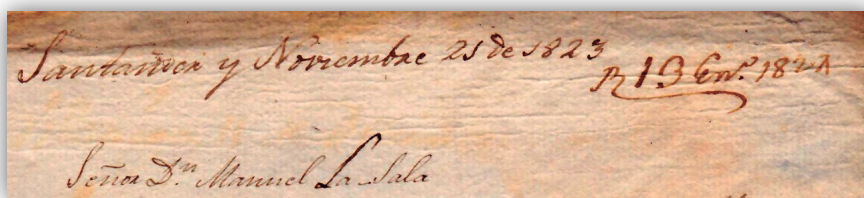 Santander y Noviembre 21 de 1823
R 13 En.º 1824
Señor D.n Manuel La Sala